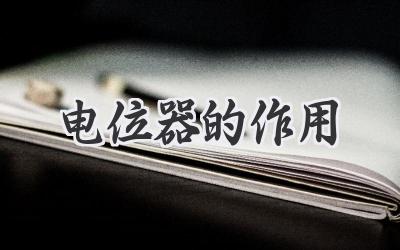 电位器的作用